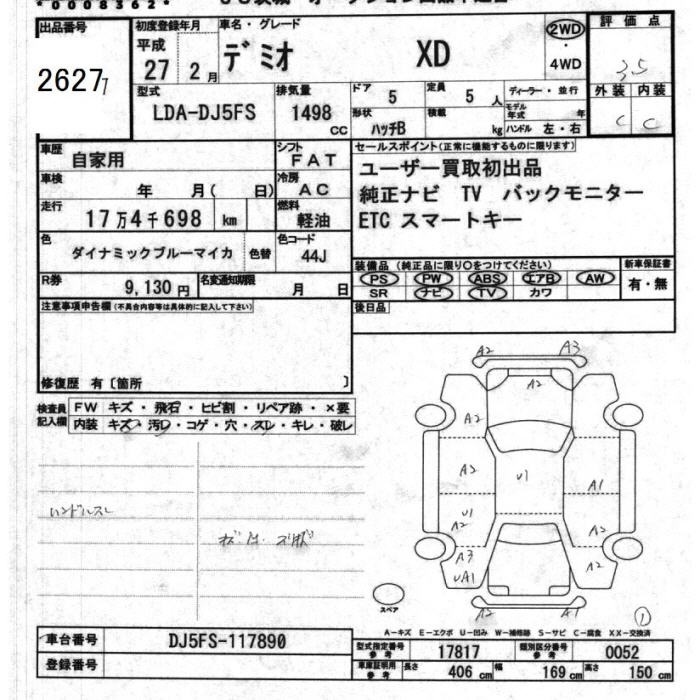 *0008362*
出品番号
26277
初度登録年月
平成
27 2月
車名・グレード
デミオ XD
2WD
・
4WD
評価点
3.5
外装 内装
C C
型式
LDA-DJ5FS
排気量
1498
CC
ドア
5
定員
5人
形状
ハッチB
積載
kg
ディーラー・並行
モデル年式 年
ハンドル 左・右
車歴
自家用
シフト
FAT
車検
年 月( 日)
冷房
AC
走行
17万4千698 km
燃料
軽油
色
ダイナミックブルーマイカ
色替
色コード
44J
R券
9,130円
名変通知期限
月 日
セールスポイント(正常に機能するものに限ります)
ユーザー買取初出品
純正ナビ TV バックモニター
ETC スマートキー
装備品(純正品に限り○をつけてください)
PS PW ABS エアB AW
SR ナビ TV カワ
新車保証書
有・無
後日品
注意事項申告欄(不具合内容等は具体的に記入して下さい)
修復歴 有〔箇所 〕
検査員記入欄
FW キズ・飛石・ヒビ割・リペア跡・×要
内装 キズ・汚レ・コゲ・穴・スレ・キレ・破レ
ハンドルスレ
A2 A3
A2
A2
A2
U1
A1
U1
A2
A2
A3
UA1
A2
A2 A1
スペア
①
A-キズ E-エクボ U-凹み W-補修跡 S-サビ C-腐食 XX-交換済
車台番号
DJ5FS-117890
登録番号
型式指定番号参考
17817
類別区分番号参考
0052
車庫証明用参考
長さ 406cm 幅 169cm 高さ 150cm